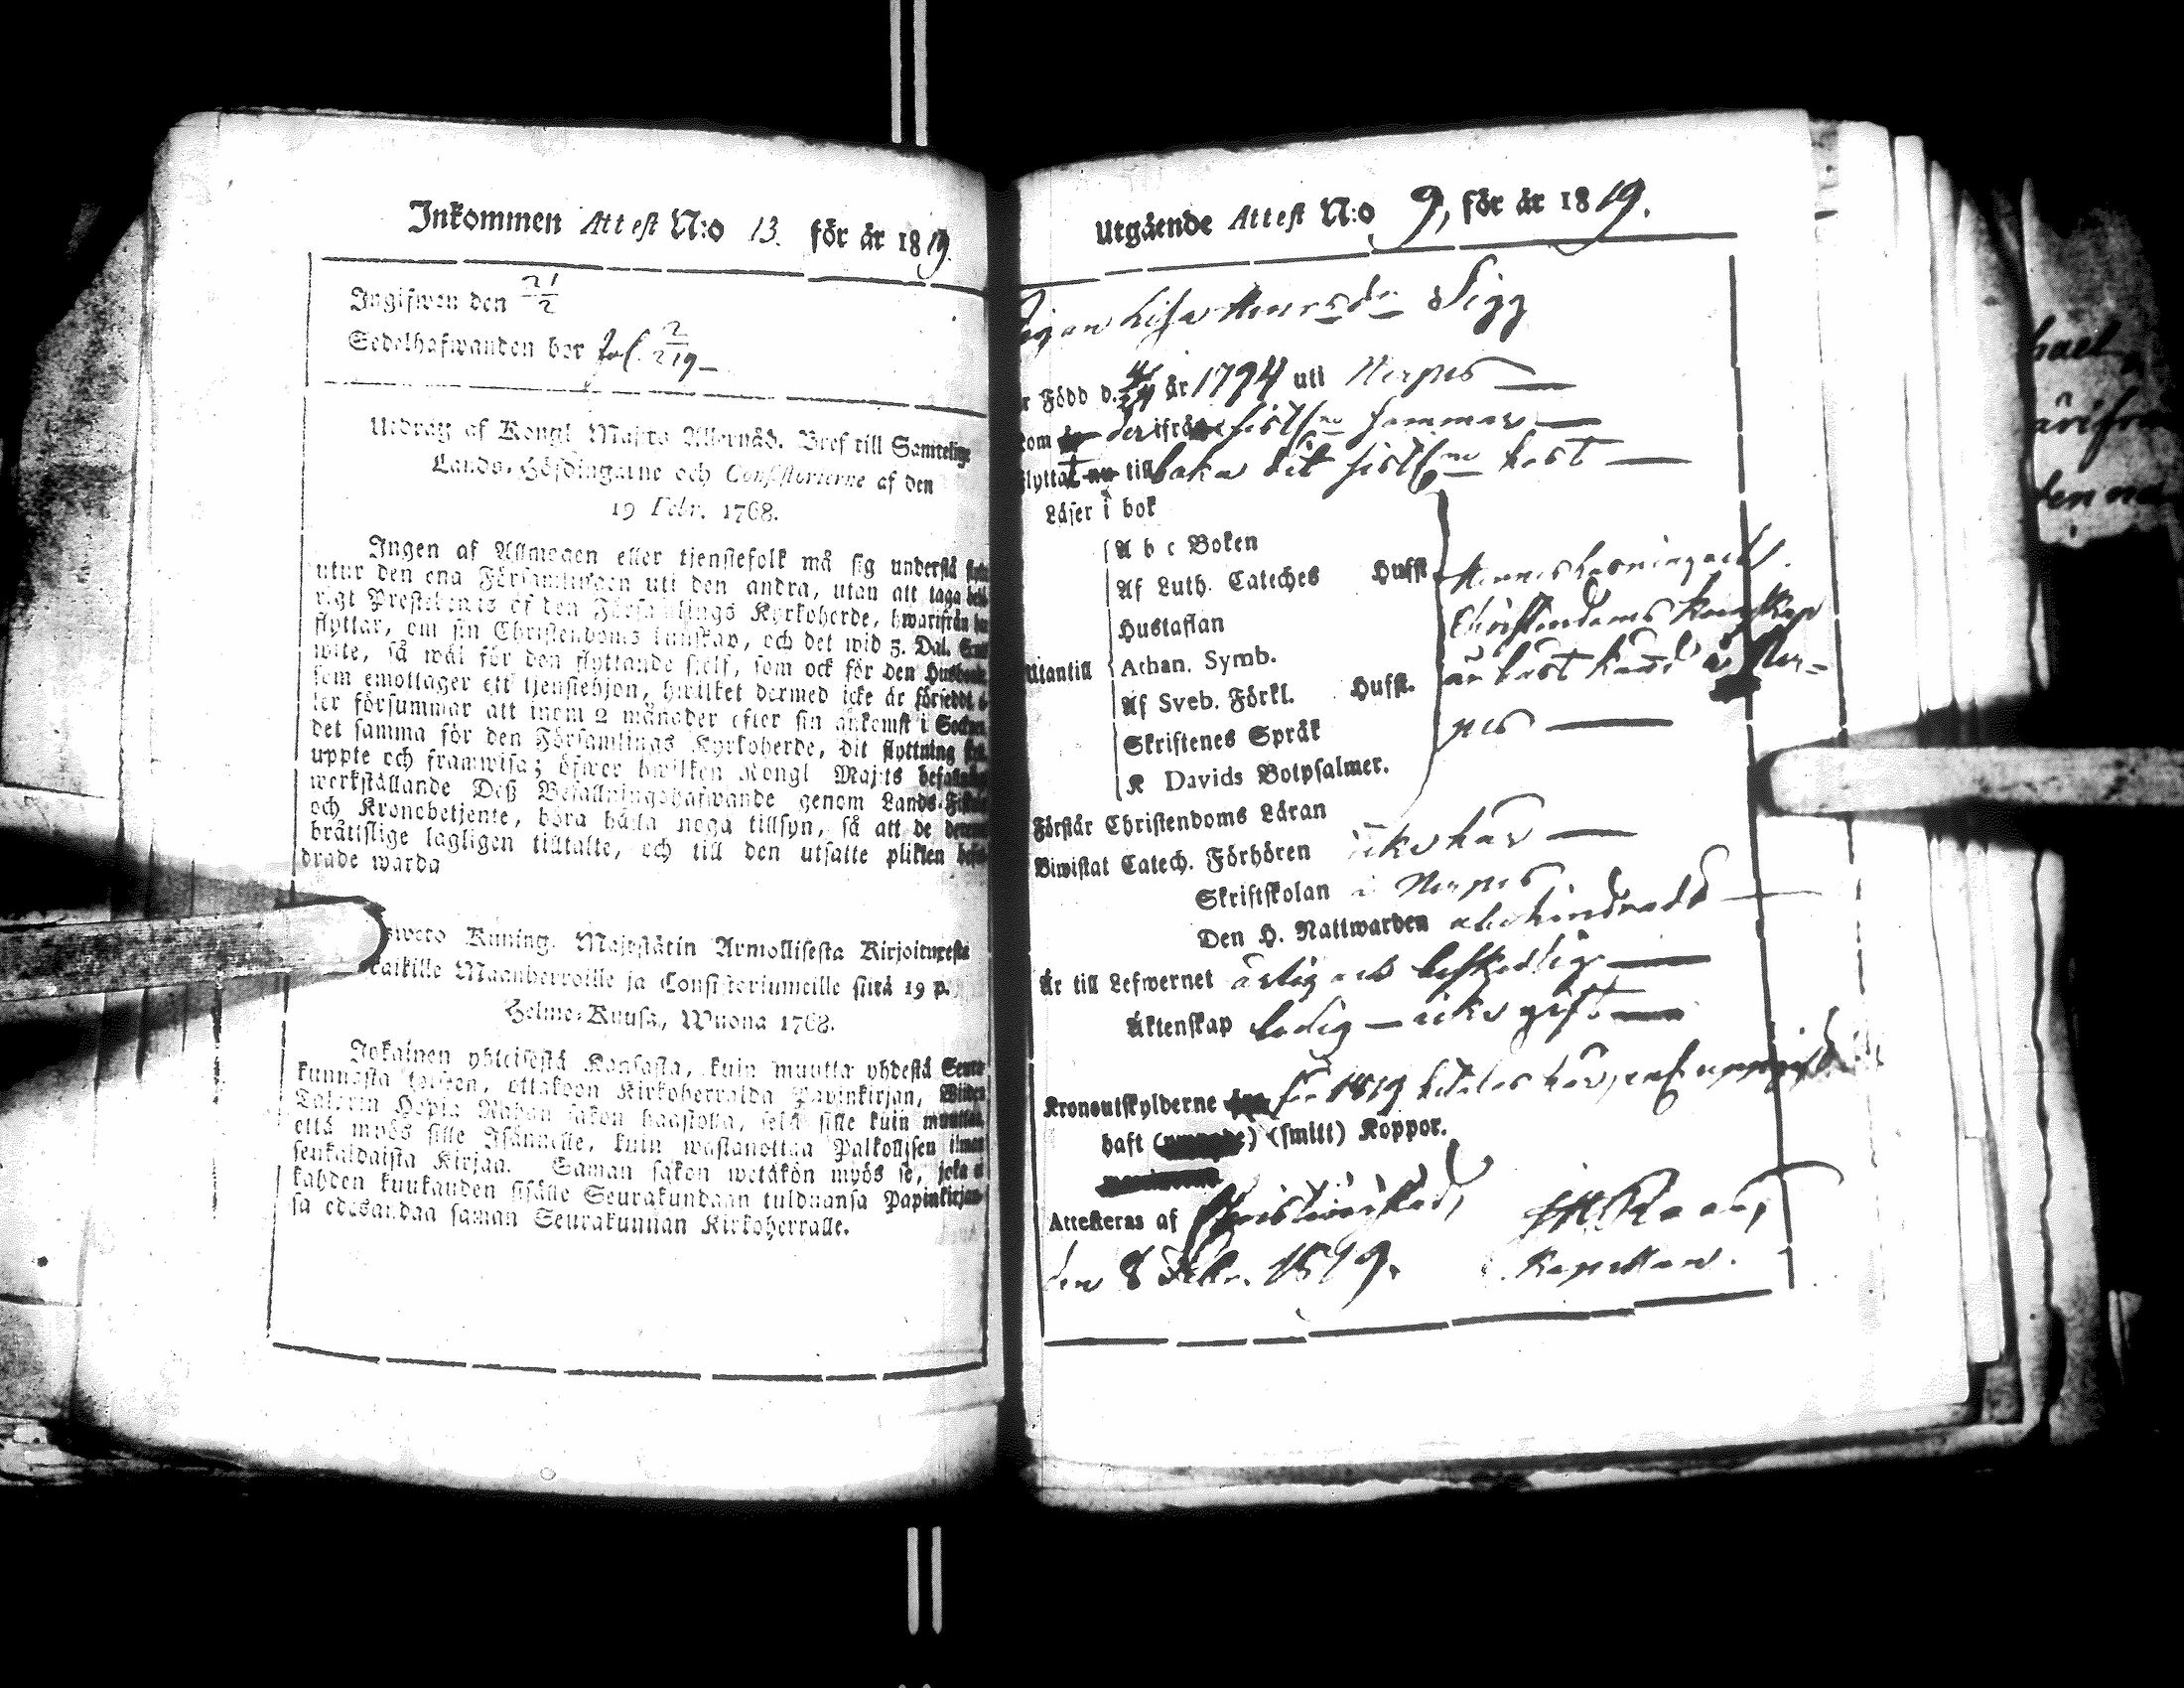 Inkommen Attest N:o 13. för år 1819.
Ingifwen den 21/2
Sedelhafwanden bor fol. 219
Utdrag af Kongl. Maj:ts Allernåd. Bref till Samtelige
Lands-Höfdingarne och Consistorierne af den
19 Febr. 1768.
Ingen af Allmogen eller tjenstefolk må sig understå
utur den ena Församlingen uti den andra, utan att taga
rigt Prestebewis af den Församlings Kyrkoherde, hwarifrån
flyttar, om sin Christendoms kunskap, och det wid 5. Dal.
wite, så wäl för den flyttande sjelf, som ock för den
som emottager ett tjenstehjon, hwilket dermed icke är försedt
ler försummar att inom 2 månader efter sin ankomst i Socknen
det samma för den Församlings Kyrkoherde, dit flyttning
uppte och framwisa; öfwer hwilken Kongl Maj:ts befallning
werkställande Deß Befallningshafwande genom Lands-
och Kronobetjente, böra hålla noga tillsyn, så att de
bråtslige lagligen tilltalte, och till den utsatte plikten
drade warda
Kuning. Majestätin Armollisesta Kirjoituxesta
kaikille Maanherroille ja Consistoriumeille siitä 19 p.
Helme-Kuusa, Wuona 1768.
Jokainen yhteisestä Kansasta, kuin muutta yhdestä
kunnasta toiseen, ottakoon Kirkoherralda Papinkirjan,
Talarin Hopia Rahan sakon haastolla, sekä sille kuin
että myös sille Isännelle, kuin wastanottaa Palkollisen ilman
senkaldaista Kirjaa. Saman sakon wetäkön myös se, joka ei
kahden kuukauden sisälle Seurakundaan tulduansa Papinkirjan
sa edesandaa saman Seurakunnan Kirkoherralle.
Utgående Attest N:o 9, för år 1819.
Pigan Lisa Sigg
Född d. år 1794 uti Nerpes
kom derifrån sistl. sommar
flyttat tillbaka dit sistl. höst
Läser i bok
A b c Boken
Af Luth. Cateches Hufst.
Hustaflan
Utantill Athan. Symb.
Af Sveb. Förkl. Hufst.
Skriftenes Språk
K Davids Botpsalmer.
Christendoms kunskap
är bäst känd i Ner-
pes
Förstår Christendoms Läran
Biwistat Catech. Förhören icke här
Skriftskolan i Nerpes
Den H. Nattwarden obehindrad
Är till Lefwernet ärlig och beskedlig
Äktenskap ledig — icke gift
Kronoutskylderne för 1819
haft (smitt) Koppor.
Attesteras af Christinestad,
den 8 Febr. 1819. Kapellan.